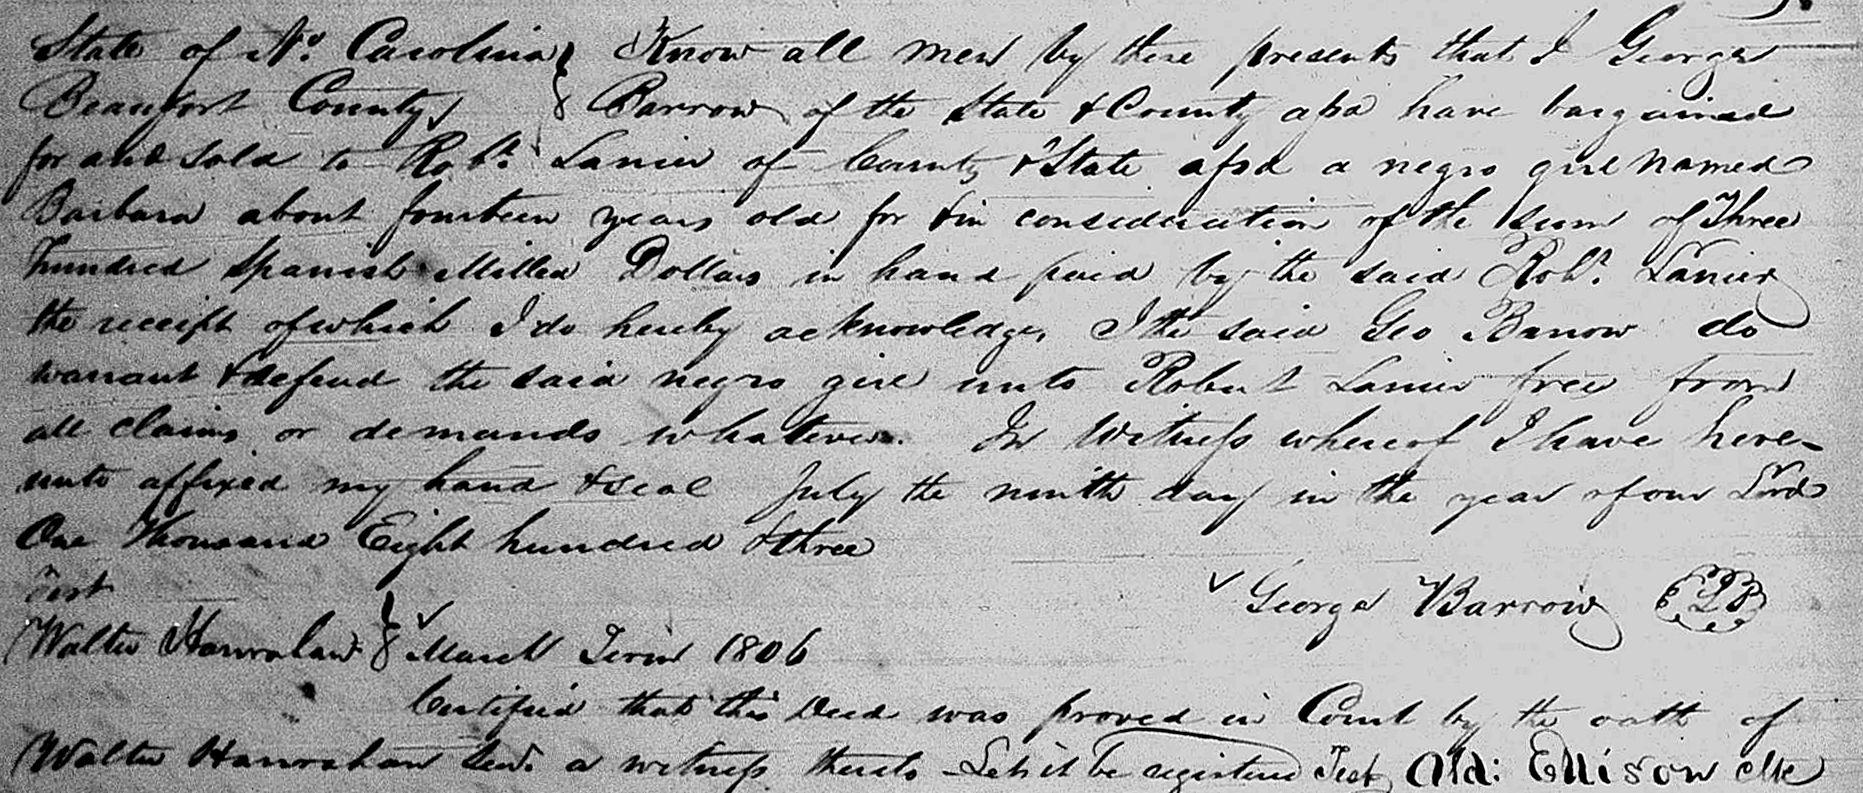 State of No. Carolina } Know all men by these presents that I George
Beaufort County } Barrow of the State & County afsd have bargained
for and Sold to Robt. Lanier of County & State afsd a negro girl named
Barbara about fourteen years old for & in consideration of the sum of Three
hundred Spanish Milled Dollars in hand paid by the said Robt. Lanier
the receipt of which I do hereby acknowledge, I the said Geo Barrow do
warrant & defend the said negro girl unto Robert Lanier free from
all claims or demands whatever. In Witness whereof I have here-
unto affixed my hand & seal July the ninth day in the year of our Lord
One Thousand Eight hundred & three
Test
George Barrow
Walter Hanrahan } March Term 1806
Certified that this Deed was proved in Court by the oath of
Walter Hanrahan Senr. a witness thereto Let it be registered Test Ald: Ellison clk